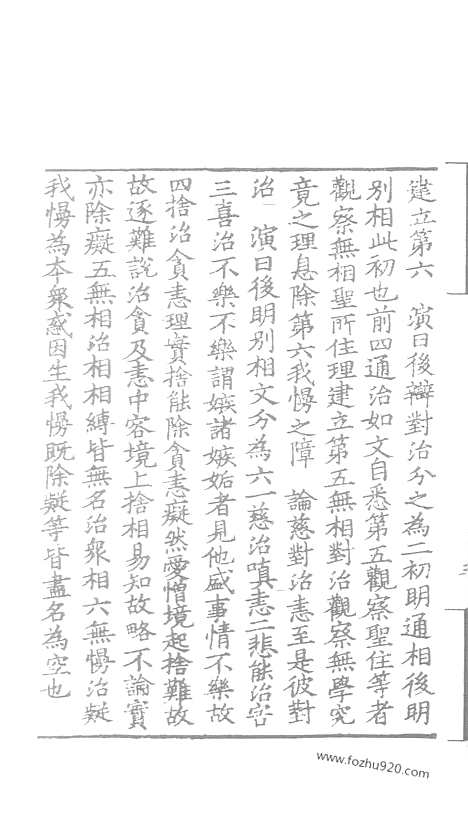 建立第六　演曰後辯對治分之為二初明通相後明
別相此初也前四通治如文自悉第五觀察聖住等者
觀察無相聖所住理建立第五無相對治觀察無學究
竟之理息除第六我慢之障　論慈對治恚至是彼對
治　演曰後明別相文分為六一慈治嗔恚二悲能治害
三喜治不樂不樂謂嫉諸嫉妬者見他盛事情不樂故
四捨治貪恚理實捨能除貪恚癡然愛憎境起捨難故
故逐難說治貪及恚中容境上捨相易知故略不論實
亦除癡五無相治相相縛皆無名治衆相六無慢治疑
我慢為本衆惑因生我慢既除疑等皆盡名為空也
www.fozhu920.com